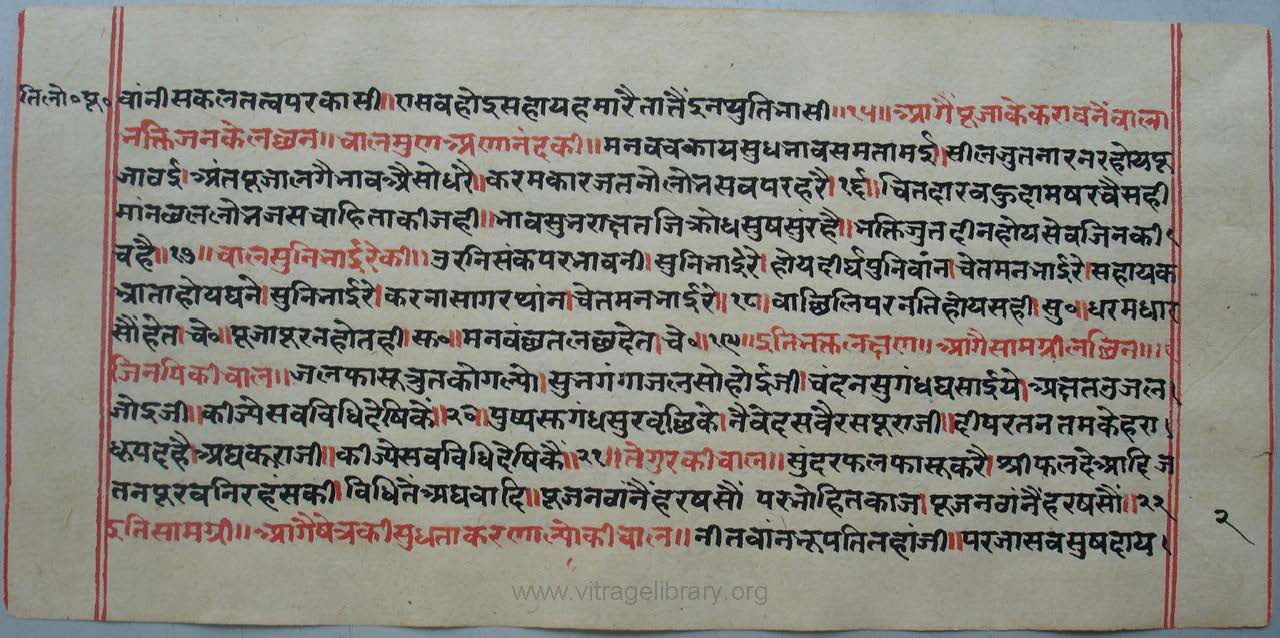 तिलो॰पू॰
वांनीसकलतत्वपरकासी॥एसवहोइसहायहमारैतातैंइनथुतिभासी॥१५॥आगैंपूजाकेकरावनैंवाला
भक्तिजनकेलछन॥चालमुणअणानंदकी॥मनवचकायसुधभावसमतामई।सीलजुतनारनरहोयपू
जावई।अंतपूजालगैभावअैसोधरै।करमकारजतनौलोभसवपरहरै।१६।चितउदारवकुदामषरचैसही
मांनछललोभजसचाहिताकीजही॥भावसुनराक्षतजिक्रोधसुषसुंरहै॥भक्तिजुतदीनहोयसेवजिनकी।
चहै॥१७॥चालसुनिभाईरेकी॥उरनिसंकपरभावनी।सुनिभाईरे।होयदीर्घपुनिवांन।चेतमनभाईरे।सहायक
भ्राताहोयघने।सुनिभाईरे।करनासागरथांन।चेतमनभाईरे।१८।वाछिलिपरनतिहोयसही।सु॰।धरमधार
सौंहेत।चे॰।पूजापूरनहोतही।सु॰॥मनवंछतलछदेत।चे॰।१९॥इतिभक्तलक्षण॥आगैसामग्रीलछिन॥
जिनयिकीचाल॥जलफासूजुतकोगल्यो।सुभगंगाजलसोहोईजी।चंदनसुगंधघसाईये।अक्षतउजल।
जोइजी।कीज्येसवविधिदेषिकैं॥२०।पुष्पसुगंधसुरवृछिके।नैवेदसवैरसपूराजी।दीपरतनतमकेहरा।
धूपदहैअघकराजी।कीज्येसवविधिदेषिकैं॥२१।तेगुरकीचाल॥सुंदरफलफासूकरै।श्रीफलदेआदिज
तनपूरवनिरहंसकी।विधितेंअघवादि॥पूजनवांनैंहरषसौं परभोहितकाज।पूजनवांनैंहरषसौं॥२२
इतिसामग्री॥आगैषेत्रकीसुधताकरणाल्योकीचाल॥नीतवांनभूपतितहांजी॥परजासवसुषदाय।
२
www.vitragelibrary.org